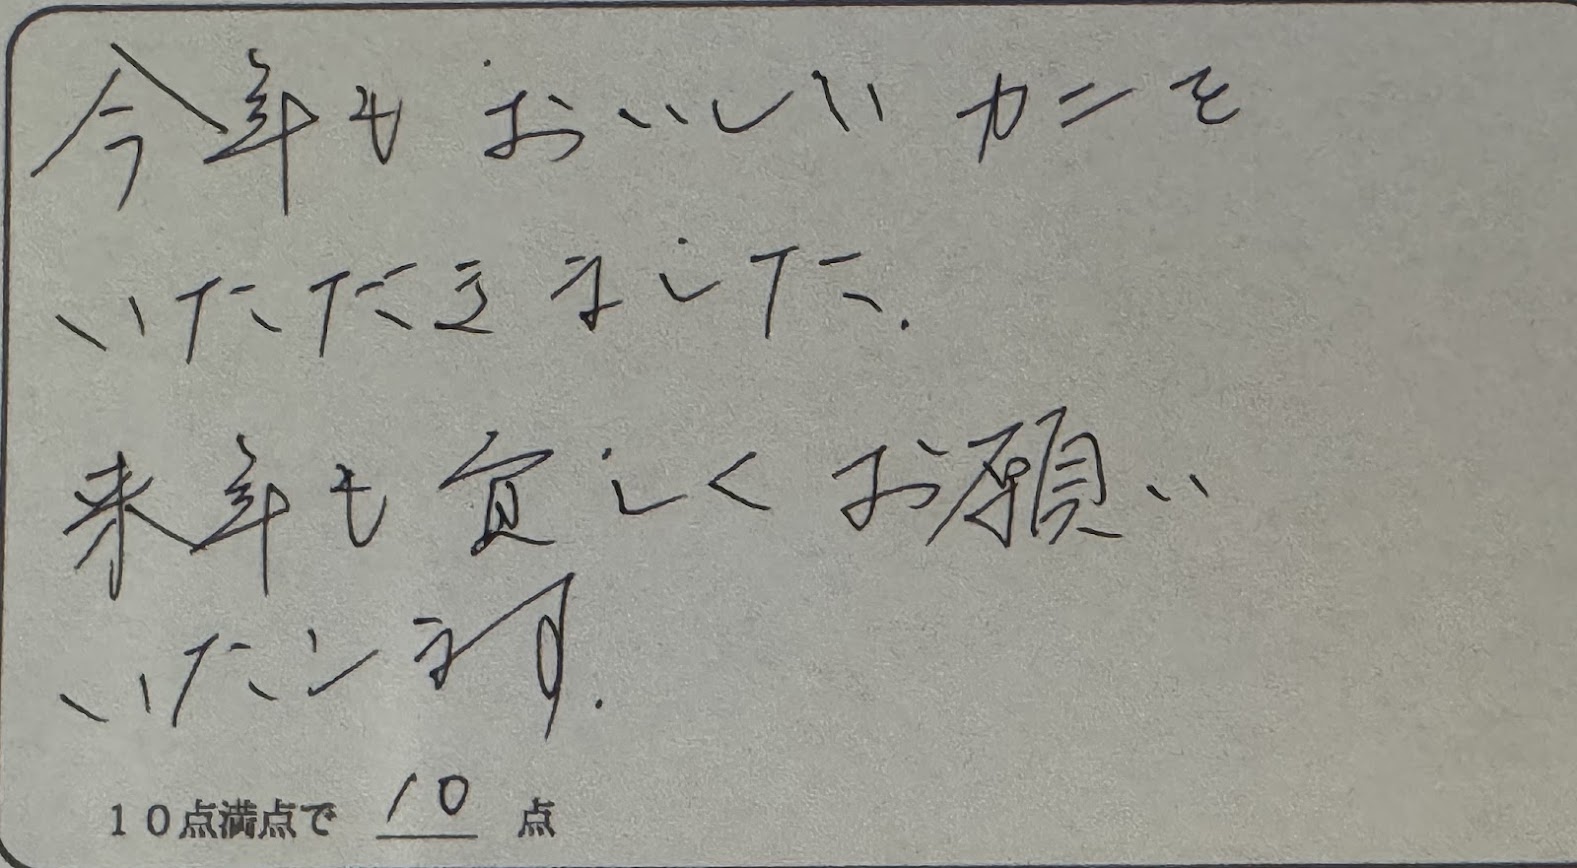 今年もおいしいカニを
いただきました.
来年も宜しくお願い
いたします.
10点満点で 10 点